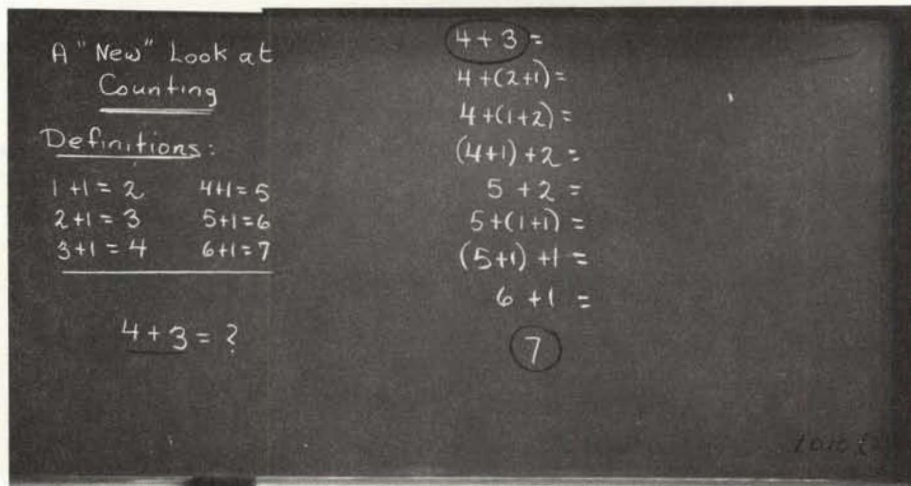 A "New" Look at
Counting
Definitions:
1+1=2 4+1=5
2+1=3 5+1=6
3+1=4 6+1=7
4+3=?
4+3=
4+(2+1)=
4+(1+2)=
(4+1)+2=
5+2=
5+(1+1)=
(5+1)+1=
6+1=
7